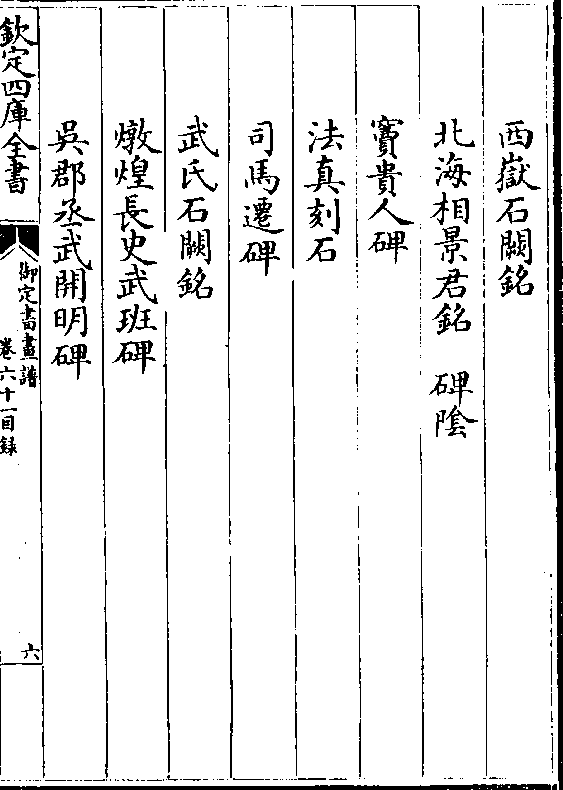 西嶽石闕銘
北海相景君銘 碑陰
竇貴人碑
法真刻石
司馬遷碑
武氏石闕銘
燉煌長史武班碑
吳郡丞武開明碑
欽定四庫全書
御定書畫譜
卷六十一目録
六